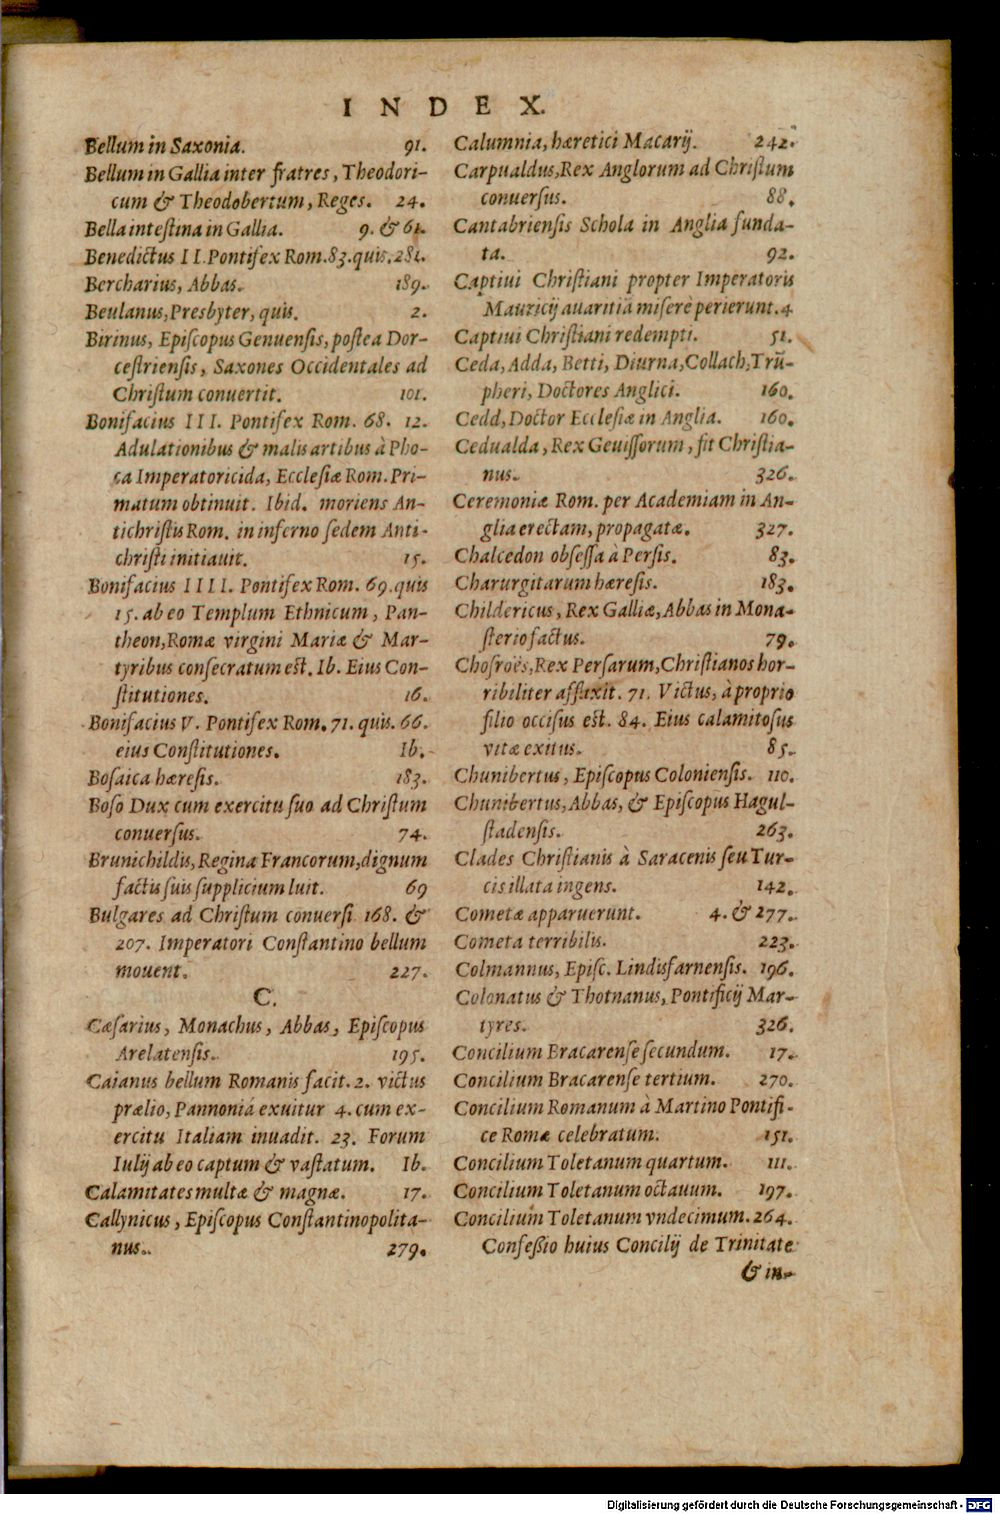 INDEX.
Bellum in Saxonia. 91.
Bellum in Gallia inter fratres, Theodori-
cum & Theodobertum, Reges. 24.
Bella intestina in Gallia. 9. & 61.
Benedictus II. Pontifex Rom. 83. quis. 281.
Bercharius, Abbas. 189.
Beulanus, Presbyter, quis. 2.
Birinus, Episcopus Genuensis, postea Dor-
cestriensis, Saxones Occidentales ad
Christum conuertit. 101.
Bonifacius III. Pontifex Rom. 68. 12.
Adulationibus & malis artibus à Pho-
ca Imperatoricida, Ecclesiæ Rom. Pri-
matum obtinuit. Ibid. moriens An-
tichristis Rom. in inferno sedem Anti-
christi initiauit. 15.
Bonifacius IIII. Pontifex Rom. 69. quis
15. ab eo Templum Ethnicum, Pan-
theon, Romæ virgini Mariæ & Mar-
tyribus consecratum est. Ib. Eius Con-
stitutiones. 16.
Bonifacius V. Pontifex Rom. 71. quis. 66.
eius Constitutiones. Ib.
Bosaica hæresis. 183.
Boso Dux cum exercitu suo ad Christum
conuersus. 74.
Brunichildis, Regina Francorum, dignum
factis suis supplicium luit. 69
Bulgares ad Christum conuersi 168. &
207. Imperatori Constantino bellum
mouent. 227.
C.
Cæsarius, Monachus, Abbas, Episcopus
Arelatensis. 195.
Caianus bellum Romanis facit. 2. victus
prælio, Pannoniá exuitur 4. cum ex-
ercitu Italiam inuadit. 23. Forum
Iulij ab eo captum & vastatum. Ib.
Calamitates multæ & magnæ. 17.
Callynicus, Episcopus Constantinopolita-
nus. 279.
Calumnia, hæretici Macarij. 242.
Carpualdus, Rex Anglorum ad Christum
conuersus. 88.
Cantabriensis Schola in Anglia funda-
ta. 92.
Captiui Christiani propter Imperatoris
Mauricij auaritiã miserè perierunt. 4
Captiui Christiani redempti. 51.
Ceda, Adda, Betti, Diurna, Collach, Trũ-
pheri, Doctores Anglici. 160.
Cedd, Doctor Ecclesiæ in Anglia. 160.
Cedualda, Rex Geuissorum, fit Christia-
nus. 326.
Ceremoniæ Rom. per Academiam in An-
glia erectam, propagatæ. 327.
Chalcedon obsessa à Persis. 83.
Charurgitarum hæresis. 183.
Childericus, Rex Galliæ, Abbas in Mona-
sterio factus. 79.
Chosroës, Rex Persarum, Christianos hor-
ribiliter afflixit. 71. Victus, à proprio
filio occisus est. 84. Eius calamitosus
vitæ exitus. 85.
Chunibertus, Episcopus Coloniensis. 110.
Chunibertus, Abbas, & Episcopus Hagul-
stadensis. 263.
Clades Christianis à Saracenis seu Tur-
cis illata ingens. 142.
Cometæ apparuerunt. 4. & 277.
Cometa terribilis. 223.
Colmannus, Episc. Lindisfarnensis. 196.
Colonatus & Thotnanus, Pontificij Mar-
tyres. 326.
Concilium Bracarense secundum. 17.
Concilium Bracarense tertium. 270.
Concilium Romanum à Martino Pontifi-
ce Romæ celebratum. 151.
Concilium Toletanum quartum. 111.
Concilium Toletanum octauum. 197.
Concilium Toletanum vndecimum. 264.
Confeßio huius Concilij de Trinitate
& in-
Digitalisierung gefördert durch die Deutsche Forschungsgemeinschaft - DFG